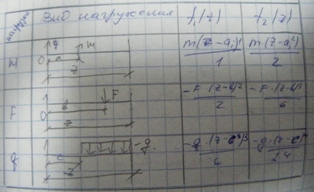 нагрузка вид нагружения f₁(z) f₂(z)
M 0 a m z m(z-a)¹ m(z-a)²
1 2
F 0 в F z -F·(z-в)² -F·(z-в)³
2 6
q 0 c -q z -q·(z-c)³ -q·(z-c)⁴
6 24